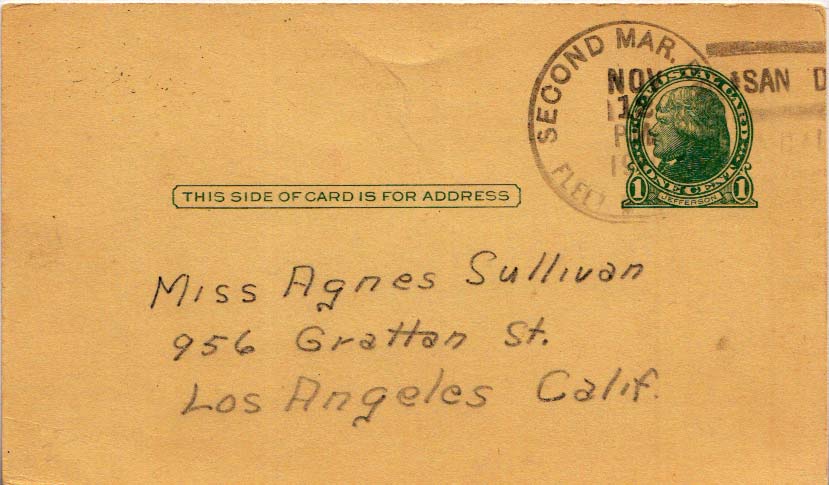 SECOND MAR.
NOV
SAN D
FLEET
U.S. POSTAL CARD
ONE CENT
1 JEFFERSON 1
THIS SIDE OF CARD IS FOR ADDRESS
Miss Agnes Sullivan
956 Grattan St.
Los Angeles Calif.